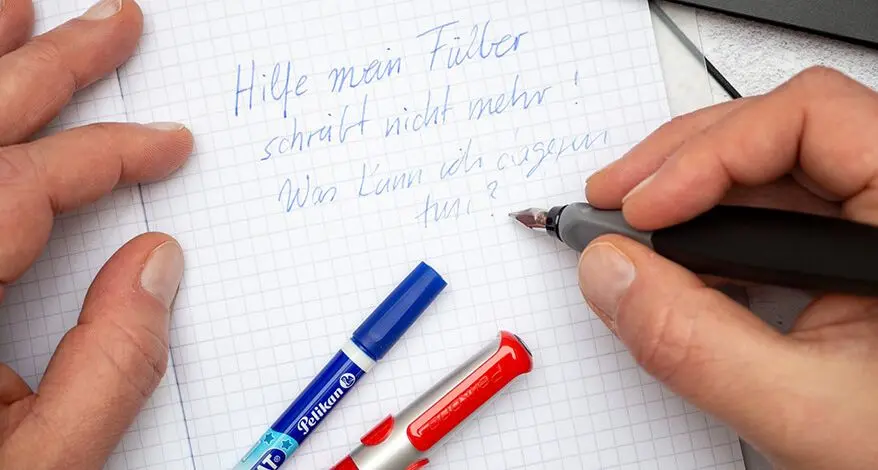 Hilfe mein Füller
schreibt nicht mehr!
Was kann ich dagegen
tun?
Pelikan